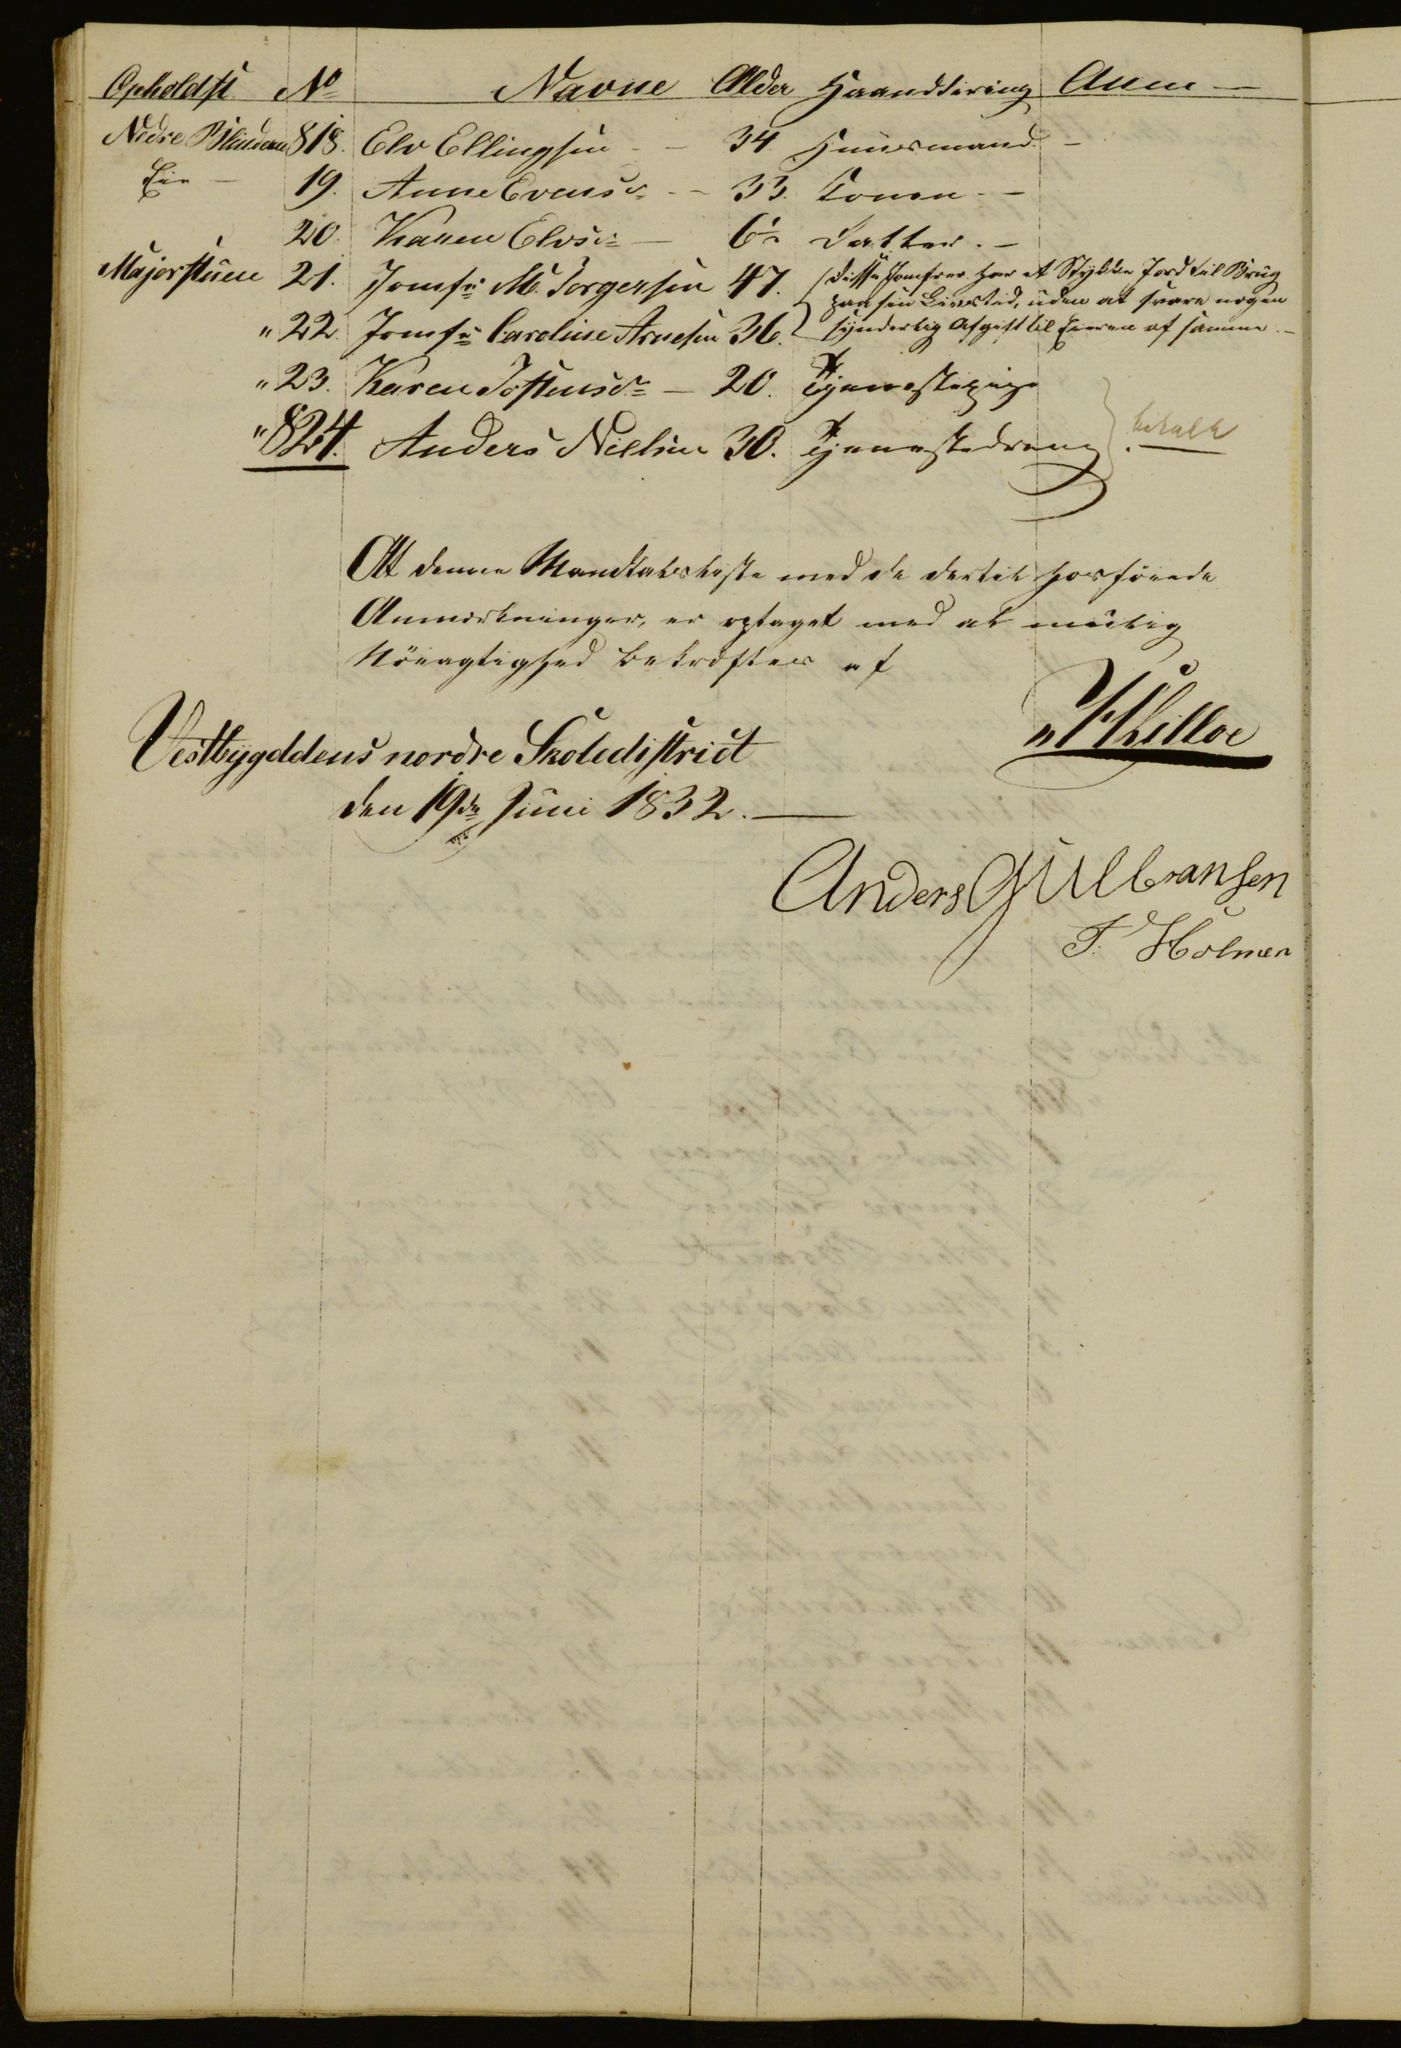 Opholdst. No Navne Alder Haandtering Anm
Nedre Blindern 818. Elv Ellingsen 34 Huusmand
Eie 19. Anne Evensd. 33. Konen
20. Karen Elvsd. 6 Datter.
Majorstuen 21. Jomfr. M. Torgersen 47. Disse Jomfruer har et Stykke Jord til Brug
paa sin Livstid, uden at svare nogen
" 22. Jomfr. Caroline Arnesen 36. synderlig Afgift til Eieren af samme.
" 23. Karen Tostensd. 20. Tjenestepige
" 824. Anders Nielsen 30. Tjenestedreng betalt
At denne Mandtalsliste med de dertil hosføiede
Anmærkninger, er optaget med al muelig
Nöiagtighed bekræftes af
Vestbygddens nordre Skoledistrict
den 19de Juni 1832.
Anders Gulbransen
T. Holmen